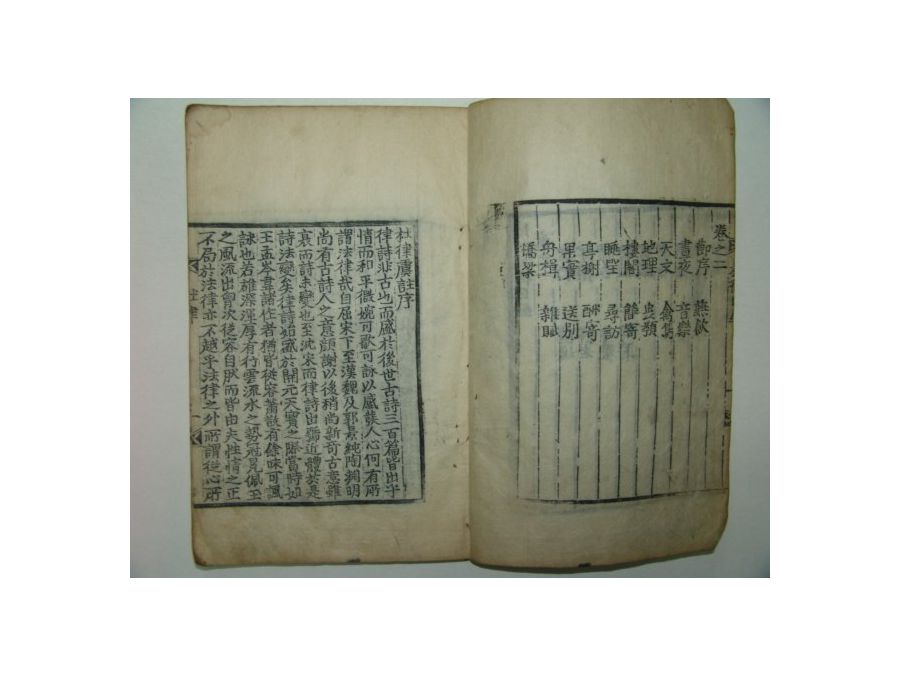 卷之二
節序 燕飲
晝夜 音樂
天文 禽鳥
地理 虫類
樓閣 簡寄
眺望 尋訪
亭榭 酬寄
果實 送別
舟楫 雜賦
橋梁
杜律虞註序
律詩非古也而盛於後世古詩三百篇皆出乎
情而和平微婉可歌可詠以感發人心何有所
謂法律哉自屈宋下至漢魏及郭景純陶淵明
尚有古詩人之意顔謝以後稍尚新奇古意雖
衰而詩未變也至沈宋而律詩出號近體於是
詩法變矣律詩始盛於開元天寶之際當時如
王孟岑韋諸作者猶皆從容蕭散有餘味可諷
詠也若雄深渾厚有行雲流水之勢冠冕佩玉
之風流出胷次從容自然而皆由夫性情之正
不局於法律亦不越乎法律之外所謂從心所